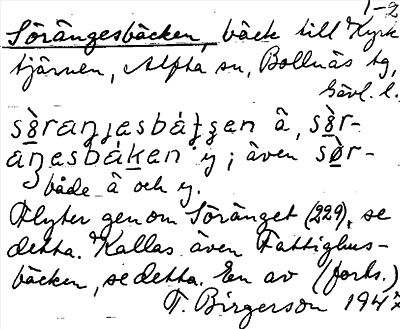 1-2
Sörängesbäcken, bäck till Kyrk-
tjärnen, Alfta sn, Bollnäs tg,
Gävl. l.
å, 
y; även
både å och y.
Flyter genom Söränget (229), se
detta. Kallas även Fattighus-
bäcken, se detta. En av (forts.)
T. Birgerson 1947